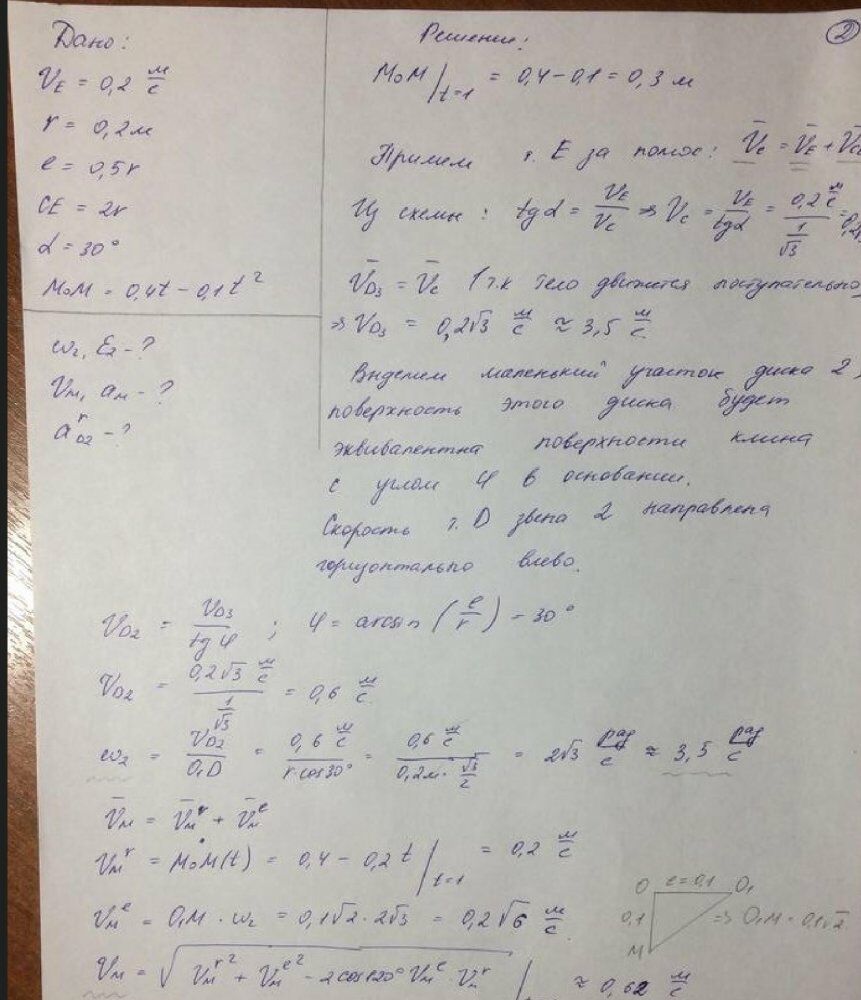 ②
Дано:
V_E = 0,2 м/с
r = 0,2м
e = 0,5r
CE = 2r
α = 30°
M₀M = 0,4t - 0,1t²
ω₂, ε₂ - ?
V_M, a_M - ?
a^r_D2 - ?
Решение:
M₀M /_{t=1} = 0,4 - 0,1 = 0,3 м
Примем т. E за полюс: V̄_C = V̄_E + V̄_CE
Из схемы: tgα = V_E/V_C ⇒ V_C = V_E/tgα = (0,2 м/с)/(1/√3) =
V̄_D3 = V̄_C (т.к тело движется поступательно
⇒ V_D3 = 0,2√3 м/с ≈ 3,5 м/с
Выделим маленький участок диска 2,
поверхность этого диска будет
эквивалентна поверхности клина
с углом φ в основании.
Скорость т. D звена 2 направлена
горизонтально влево.
V_D2 = V_D3/tgφ ; φ = arcsin(e/r) = 30°
V_D2 = (0,2√3 м/с)/(1/√3) = 0,6 м/с
ω₂ = V_D2/O₁D = (0,6 м/с)/(r cos30°) = (0,6 м/с)/(0,2м · √3/2) = 2√3 рад/с ≈ 3,5 рад/с
V̄_M = V̄_M^r + V̄_M^e
V_M^r = M₀Ṁ(t) = 0,4 - 0,2t /_{t=1} = 0,2 м/с
V_M^e = O₁M · ω₂ = 0,1√2 · 2√3 = 0,2√6 м/с
O e=0,1 O₁
0,1 ⇒ O₁M = 0,1√2
M
V_M = √(V_M^r² + V_M^e² - 2cos120° V_M^e · V_M^r) | ≈ 0,62 м/с